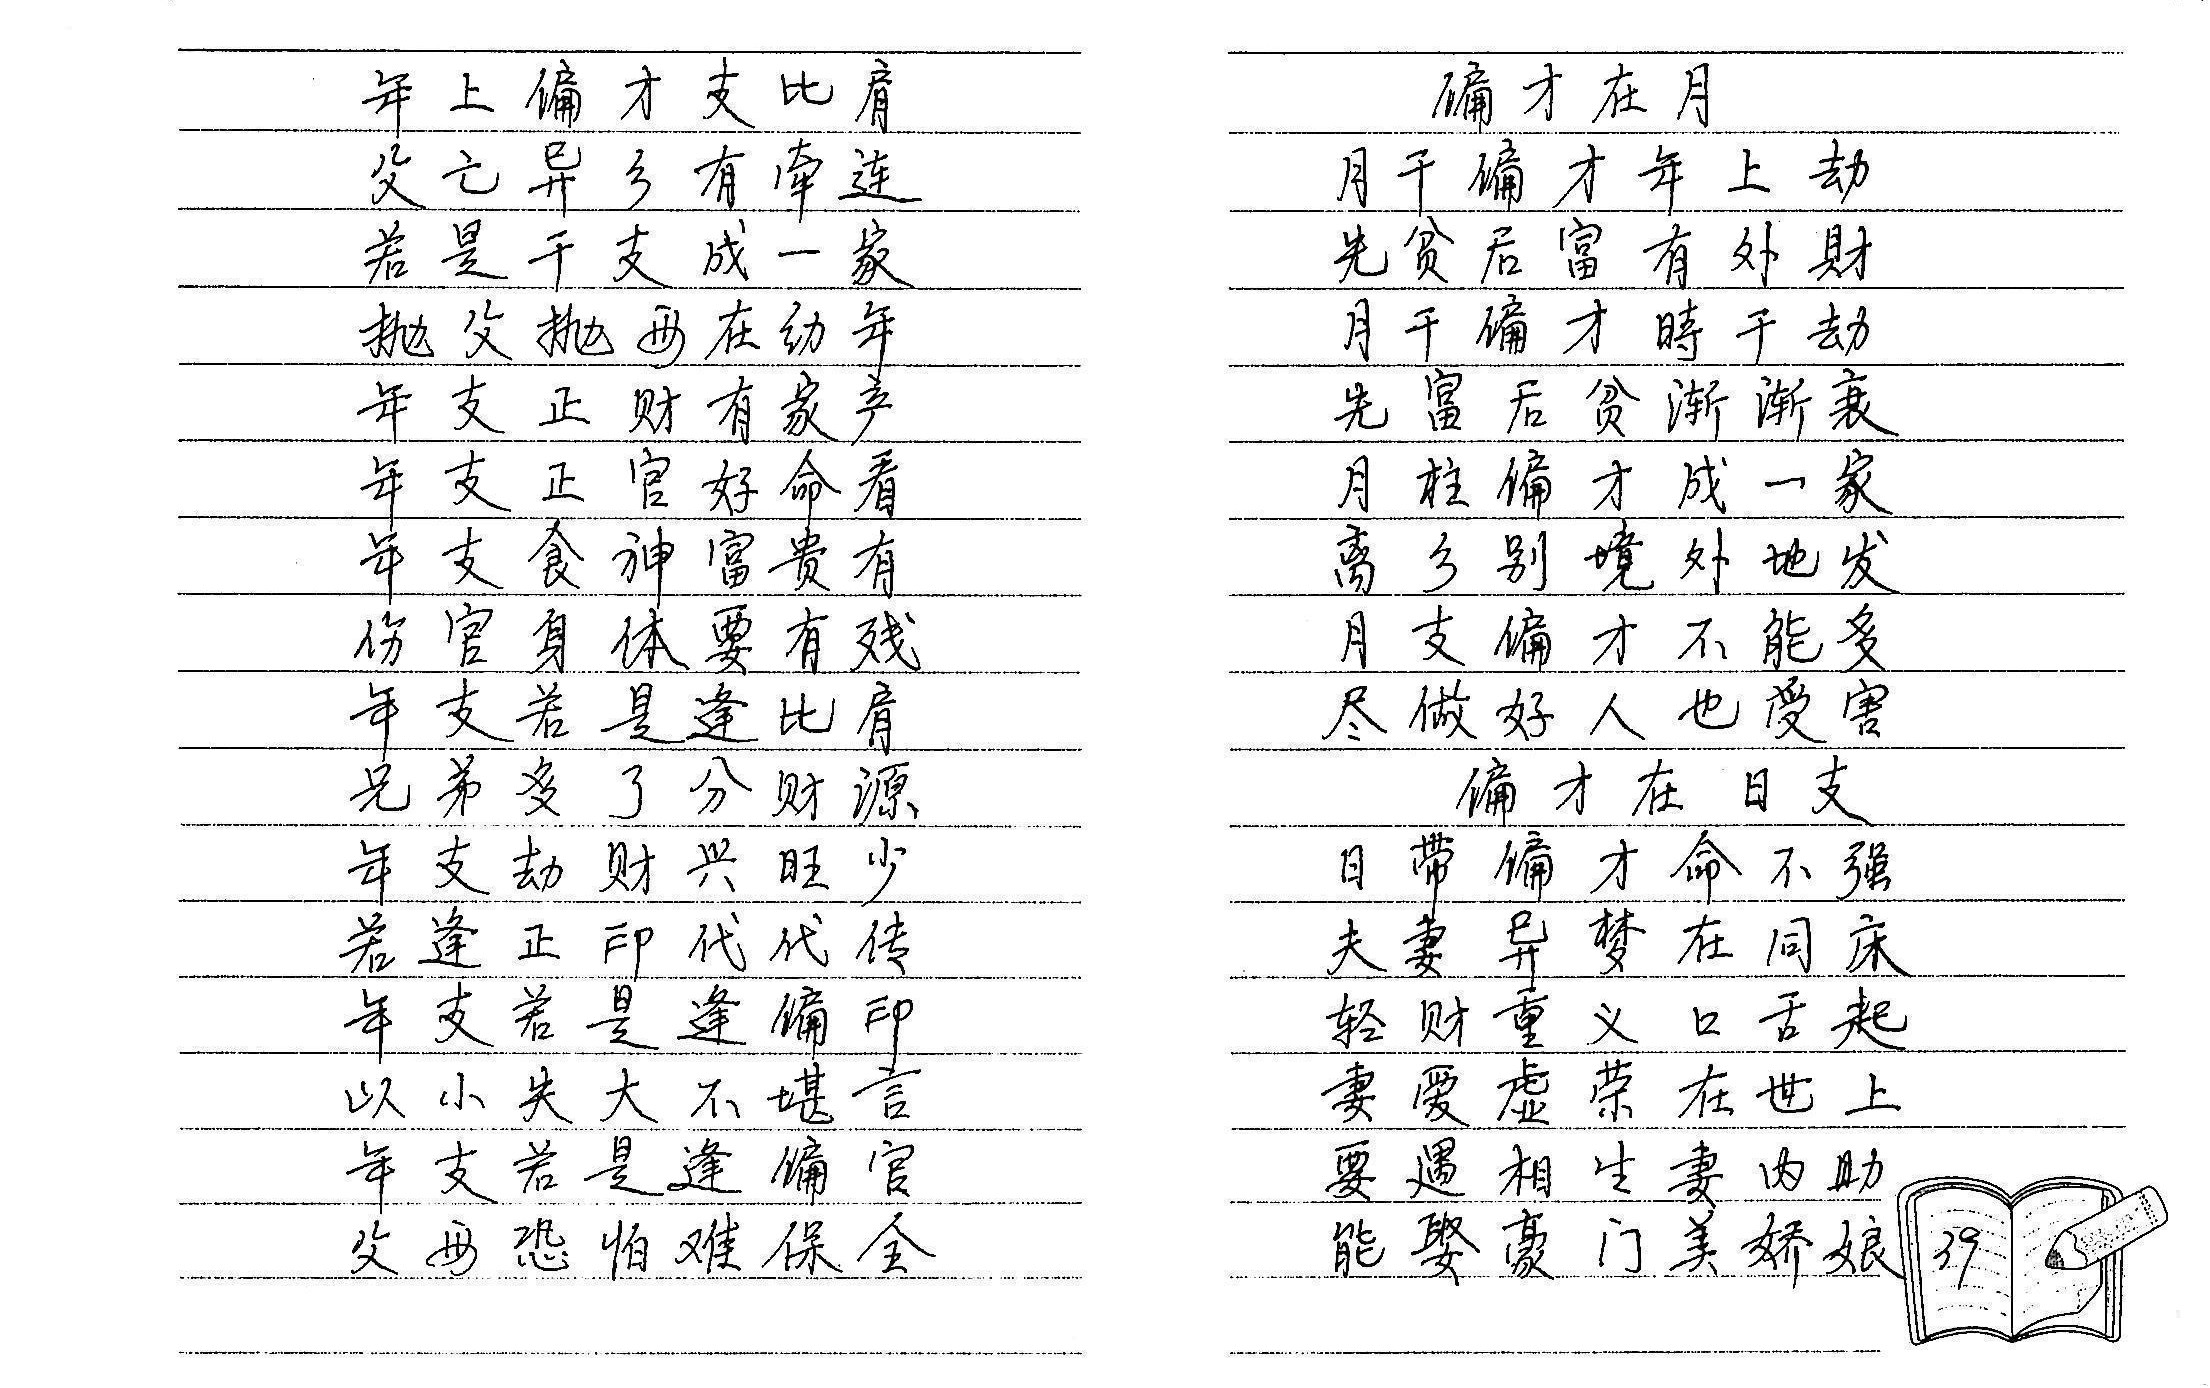 年上偏才支比肩
父亡异乡有牵连
若是干支成一家
抛父抛母在幼年
年支正财有家产
年支正官好命看
年支食神富贵有
伤官身体要有残
年支若是逢比肩
兄弟多了分财源
年支劫财兴旺少
若逢正印代代传
年支若是逢偏印
以小失大不堪言
年支若是逢偏官
父母恐怕难保全
偏才在月
月干偏才年上劫
先贫后富有外財
月干偏才時干劫
先富后贫渐渐衰
月柱偏才成一家
离乡别境外地发
月支偏才不能多
尽做好人也受害
偏才在日支
日带偏才命不强
夫妻异梦在同床
轻财重义口舌起
妻爱虚荣在世上
要遇相生妻内助
能娶豪门美娇娘
39